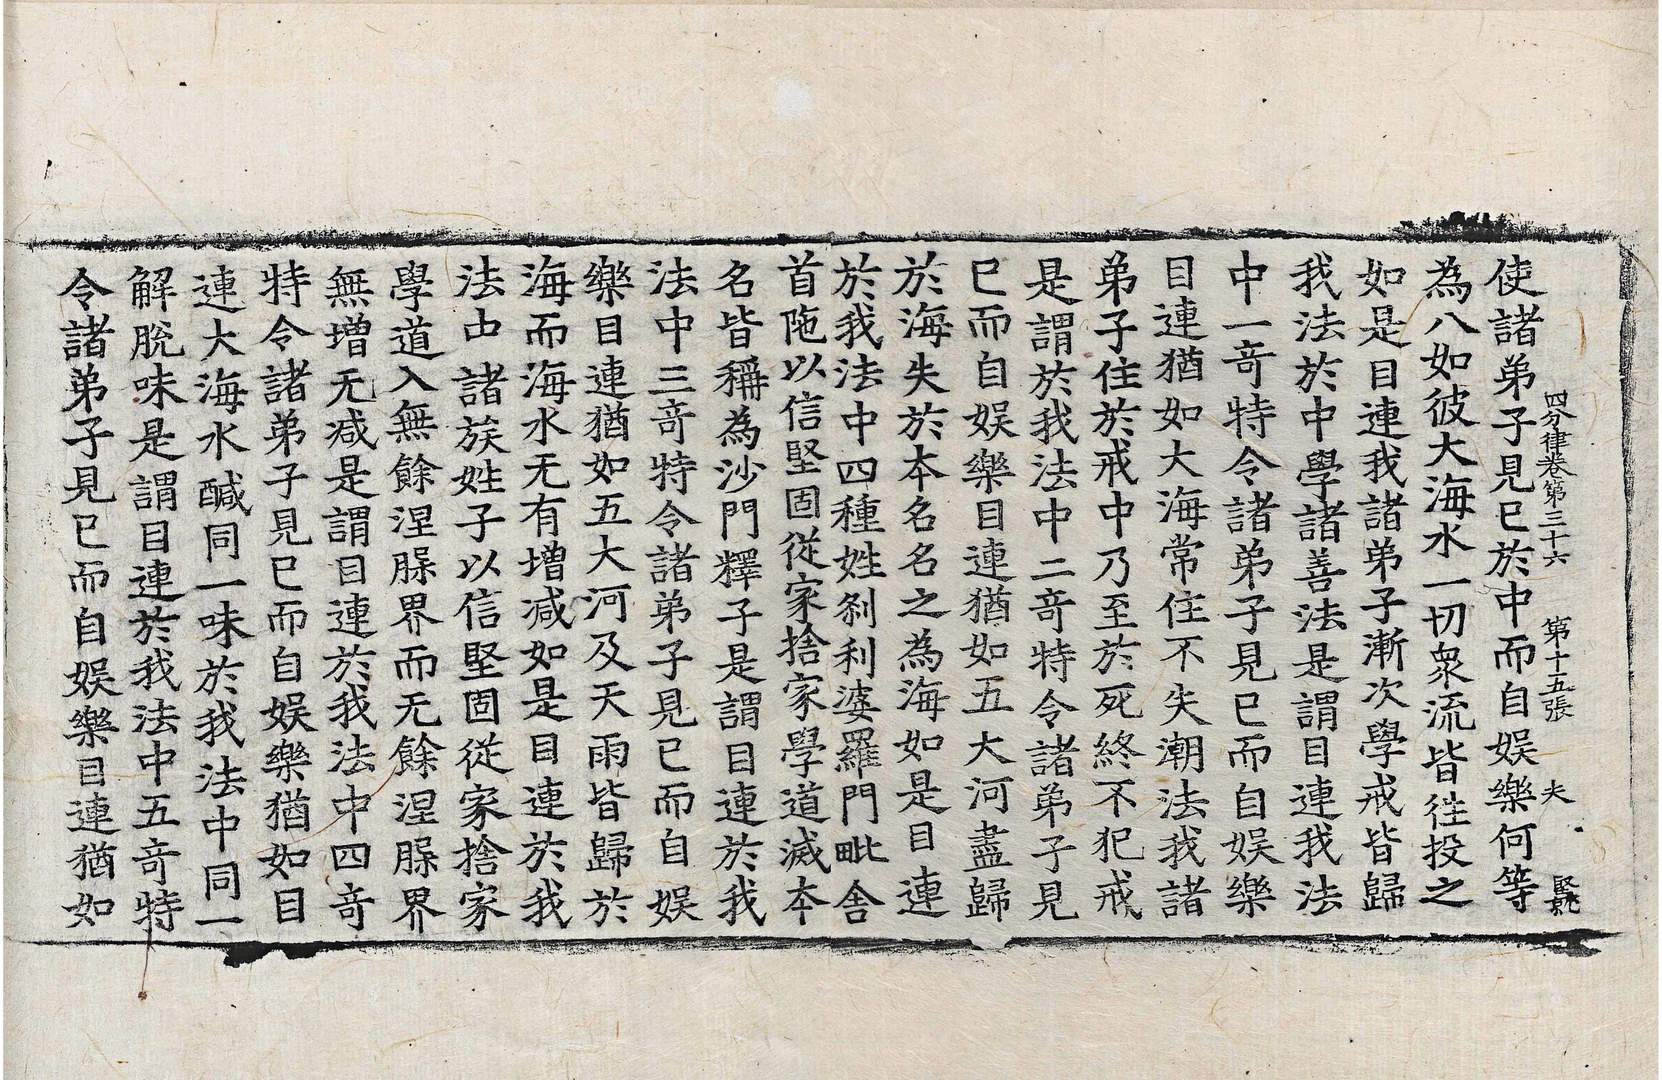 四分律卷第三十六 第十五張 夫
使諸弟子見已於中而自娛樂何等
為八如彼大海水一切衆流皆往投之
如是目連我諸弟子漸次學戒皆歸
我法於中學諸善法是謂目連我法
中一竒特令諸弟子見已而自娛樂
目連猶如大海常住不失潮法我諸
弟子住於戒中乃至於死終不犯戒
是謂於我法中二竒特令諸弟子見
已而自娛樂目連猶如五大河盡歸
於海失於本名名之為海如是目連
於我法中四種姓剎利婆羅門毗舍
首陁以信堅固從家捨家學道滅本
名皆稱為沙門釋子是謂目連於我
法中三竒特令諸弟子見已而自娛
樂目連猶如五大河及天雨皆歸於
海而海水无有增減如是目連於我
法中諸族姓子以信堅固從家捨家
學道入無餘涅槃界而无餘涅槃界
無增无减是謂目連於我法中四竒
特令諸弟子見已而自娛樂猶如目
連大海水醎同一味於我法中同一
解脫味是謂目連於我法中五竒特
令諸弟子見已而自娛樂目連猶如